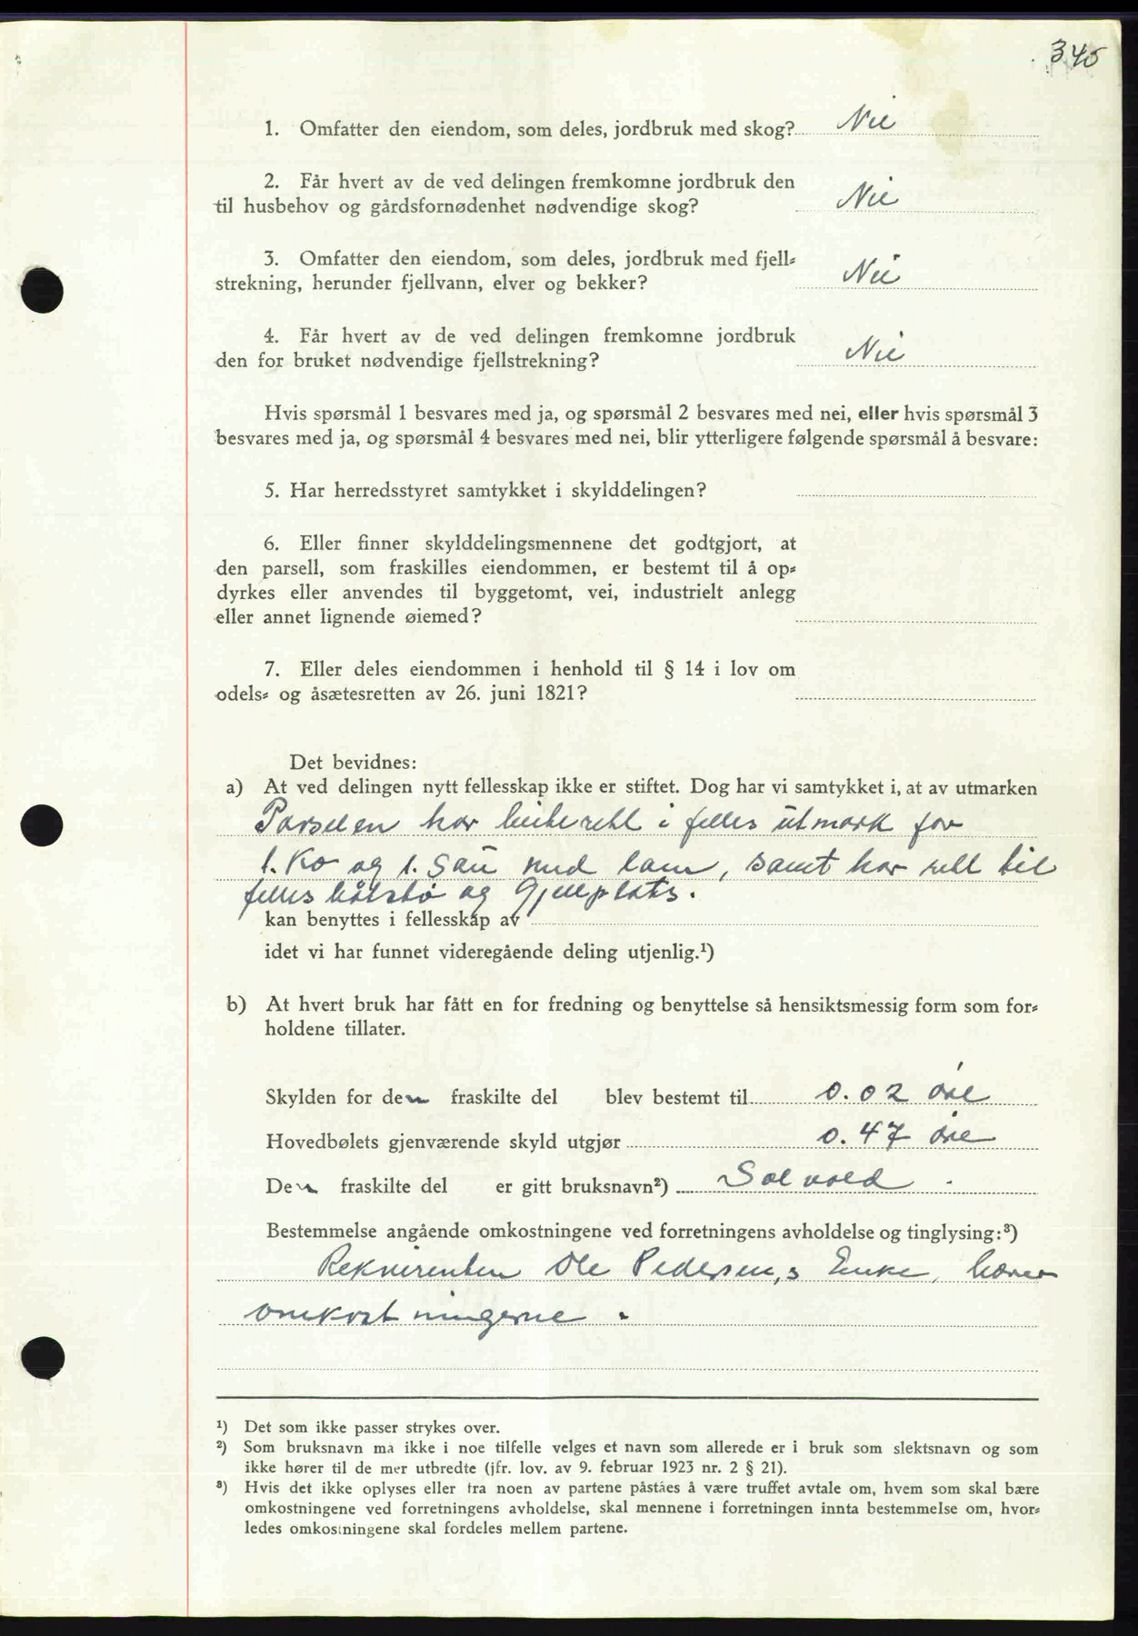 345
1. Omfatter den eiendom, som deles, jordbruk med skog? Nei
2. Får hvert av de ved delingen fremkomne jordbruk den
til husbehov og gårdsfornødenhet nødvendige skog? Nei
3. Omfatter den eiendom, som deles, jordbruk med fjell-
strekning, herunder fjellvann, elver og bekker? Nei
4. Får hvert av de ved delingen fremkomne jordbruk
den for bruket nødvendige fjellstrekning? Nei
Hvis spørsmål 1 besvares med ja, og spørsmål 2 besvares med nei, eller hvis spørsmål 3
besvares med ja, og spørsmål 4 besvares med nei, blir ytterligere følgende spørsmål å besvare:
5. Har herredsstyret samtykket i skylddelingen?
6. Eller finner skylddelingsmennene det godtgjort, at
den parsell, som fraskilles eiendommen, er bestemt til å op-
dyrkes eller anvendes til byggetomt, vei, industrielt anlegg
eller annet lignende øiemed?
7. Eller deles eiendommen i henhold til § 14 i lov om
odels- og åsætesretten av 26. juni 1821?
Det bevidnes:
a) At ved delingen nytt fellesskap ikke er stiftet. Dog har vi samtykket i, at av utmarken
Parselen har beiterett i felles utmark for
1. Ko og 1. Sau med lam, samt har rett til
felles båtstø og Gjelplats.
kan benyttes i fellesskap av
idet vi har funnet videregående deling utjenlig.¹)
b) At hvert bruk har fått en for fredning og benyttelse så hensiktsmessig form som for-
holdene tillater.
Skylden for den fraskilte del blev bestemt til 0.02 øre
Hovedbølets gjenværende skyld utgjør 0.47 øre
Den fraskilte del er gitt bruksnavn²) Solvold
Bestemmelse angående omkostningene ved forretningens avholdelse og tinglysing:³)
Rekvirenten Ole Pedersen,s Enke, bærer
omkostningerne.
¹) Det som ikke passer strykes over.
²) Som bruksnavn må ikke i noe tilfelle velges et navn som allerede er i bruk som slektsnavn og som
ikke hører til de mer utbredte (jfr. lov. av 9. februar 1923 nr. 2 § 21).
³) Hvis det ikke oplyses eller fra noen av partene påståes å være truffet avtale om, hvem som skal bære
omkostningene ved forretningens avholdelse, skal mennene i forretningen innta bestemmelse om, hvor-
ledes omkostningene skal fordeles mellem partene.